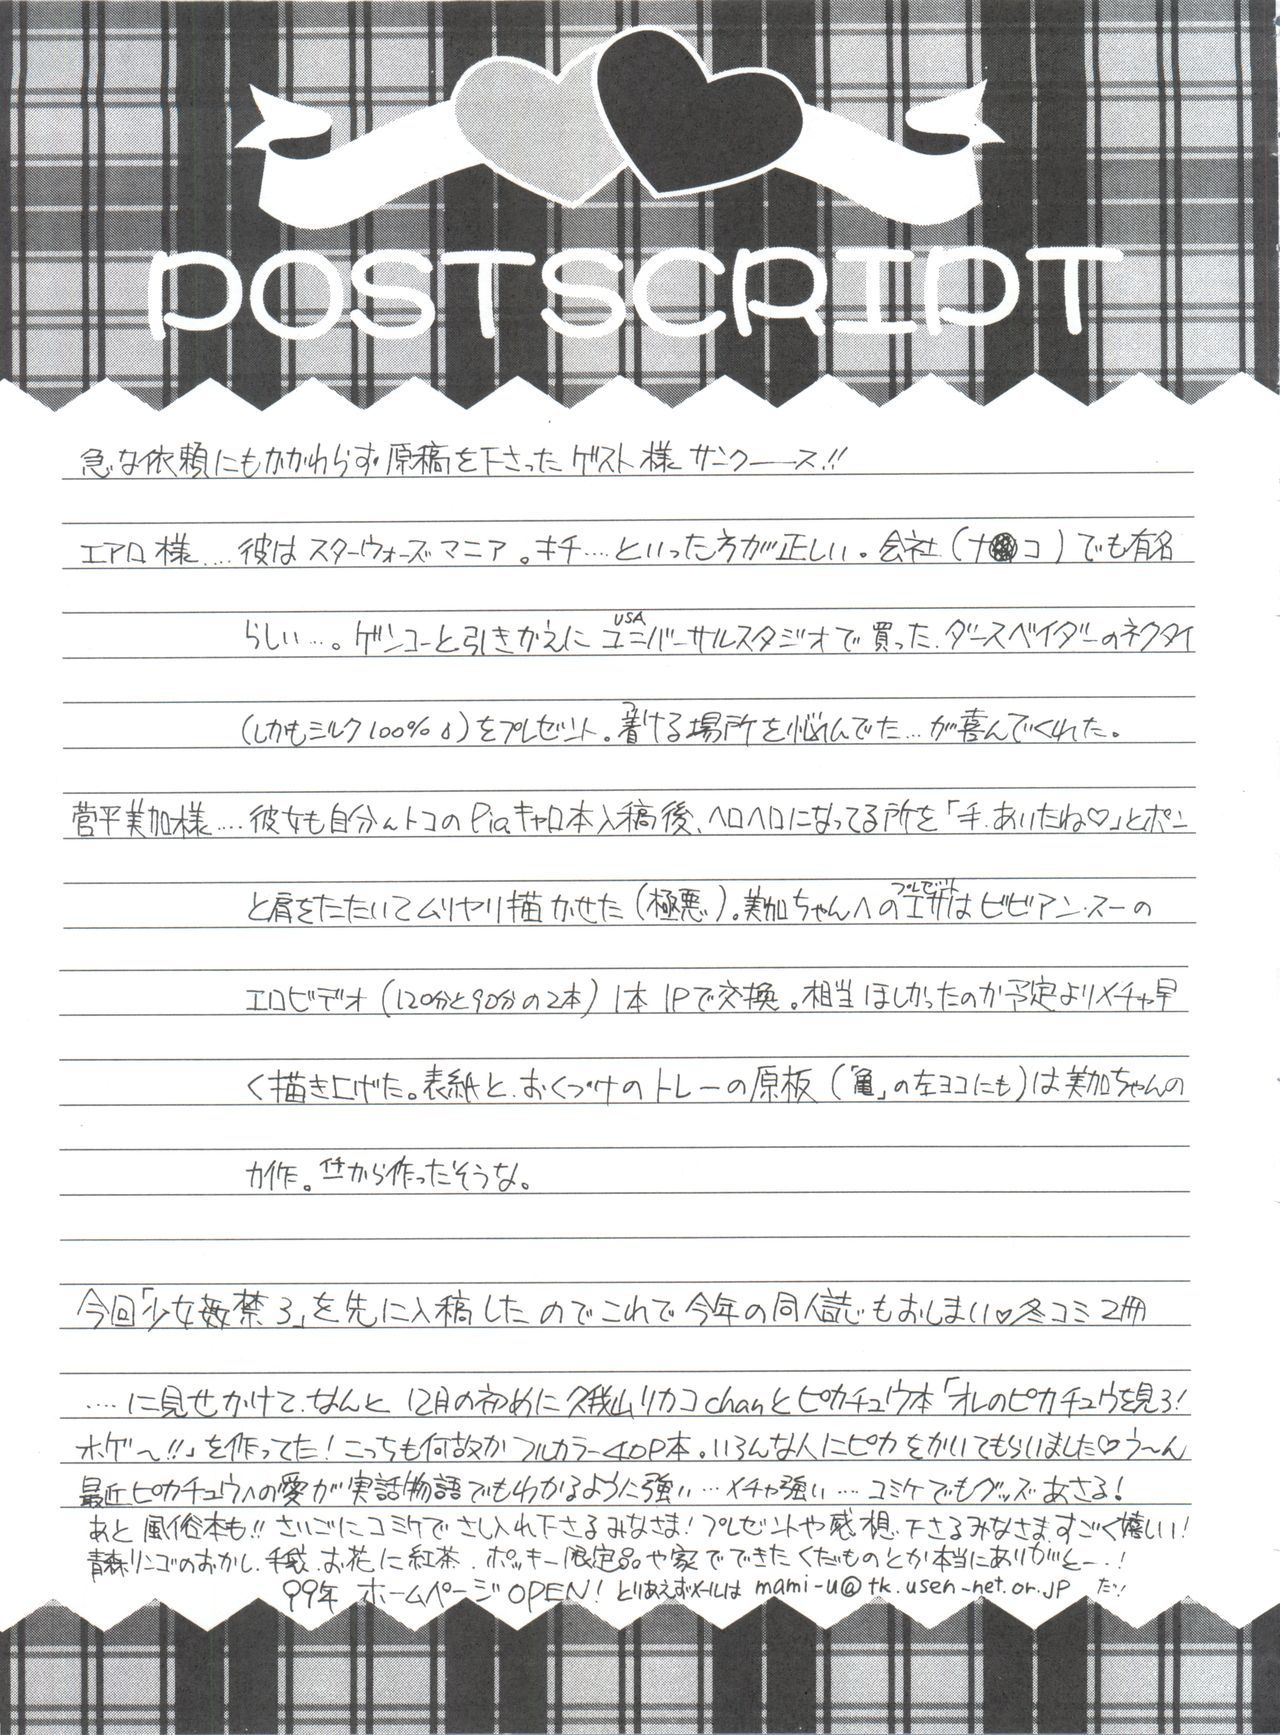 POSTSCRIPT
急な依頼にもかかわらず原稿を下さったゲスト様サンクーース!!
エアロ様‥‥彼はスターウォーズマニア。キチ‥‥といった方が正しい。会社(ナ●コ)でも有名
らしい‥‥。ゲンコーと引きかえにUSAユニバーサルスタジオで買った.ダースベイダーのネクタイ
(しかもシルク100%♪)をプレゼント。着ける場所を悩んでた‥‥が喜んでくれた。
菅平美加様‥‥彼女も自分んトコのPiaキャロ本入稿後、ヘロヘロになってる所を「手.あいたね♡」とポン
と肩をたたいてムリヤリ描かせた(極悪)。美加ちゃんへのエサ(プレゼント)はビビアン・スーの
エロビデオ(120分と90分の2本)1本1Pで交換。相当ほしかったのか予定よりメチャ早
く描き上げた。表紙と.おくづけのトレーの原板(「亀」の左ヨコにも)は美加ちゃんの
力作。一から作ったそうな。
今回「少女姦禁3」を先に入稿したのでこれで今年の同人誌もおしまい♡冬コミ2冊
‥‥に見せかけて.なんと12月の初めに久我山リカコchanとピカチュウ本「オレのピカチュウを見ろ!
ホゲ〜!!」を作ってた!こっちも何故かフルカラー40P本。いろんな人にピカをかいてもらいました♡う〜ん
最近ピカチュウへの愛が実話物語でもわかるように強い‥‥メチャ強い‥‥コミケでもグッズあさる!
あと風俗本も!!さいごにコミケでさし入れ下さるみなさま!プレゼントや感想.下さるみなさますごく嬉しい!
青森リンゴのおかし.手袋.お花に紅茶.ポッキー限定品や家でできたくだものとか本当にありがとー!
99年 ホームページOPEN!とりあえずメールは mami-u@tk.usen-net.or.jp だッ